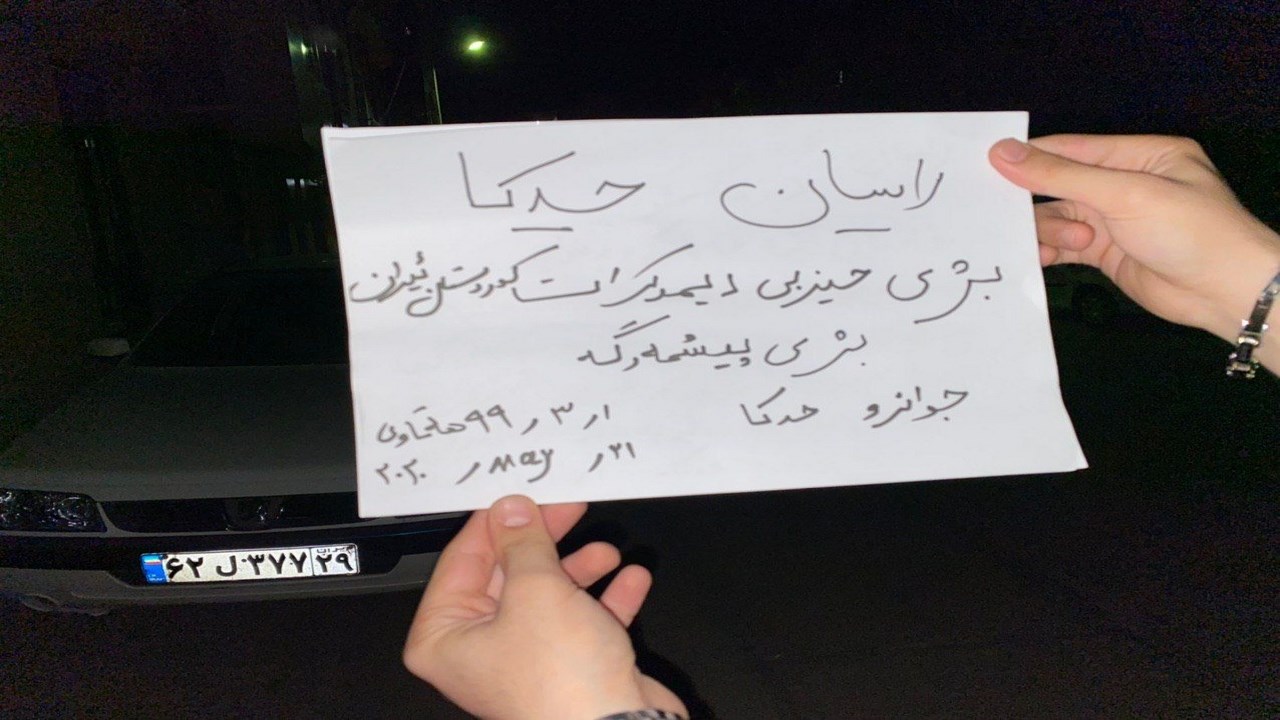 راسان حدکا
بژی حیزبی دیموکرات کوردستان ئێران
بژی پیشمه‌رگه
جوانرو حدکا
۱ر۳ر۹۹ هه‌تاوی
۲۱ر May ر ۲۰۲۰
۶۲ ل ۳۷۷ ۲۹